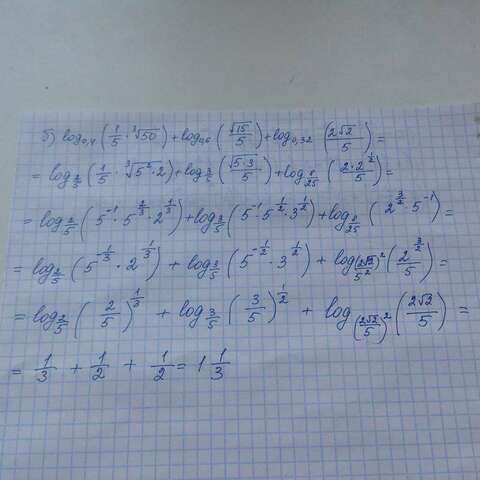 б) log₀,₄ (1/5 · ³√50) + log₀,₆ (√15/5) + log₀,₃₂ (2√2/5) =
= log_{2/5} (1/5 · ³√(5² · 2)) + log_{3/5} (√(5·3)/5) + log_{8/25} (2 · 2^{1/2}/5) =
= log_{2/5} (5^{-1} · 5^{2/3} · 2^{1/3}) + log_{3/5} (5^{-1} · 5^{1/2} · 3^{1/2}) + log_{8/25} (2^{3/2} · 5^{-1}) =
= log_{2/5} (5^{-1/3} · 2^{1/3}) + log_{3/5} (5^{-1/2} · 3^{1/2}) + log_{(2√2)²/5²} (2^{3/2}/5) =
= log_{2/5} (2/5)^{1/3} + log_{3/5} (3/5)^{1/2} + log_{(2√2/5)²} (2√3/5) =
= 1/3 + 1/2 + 1/2 = 1 1/3